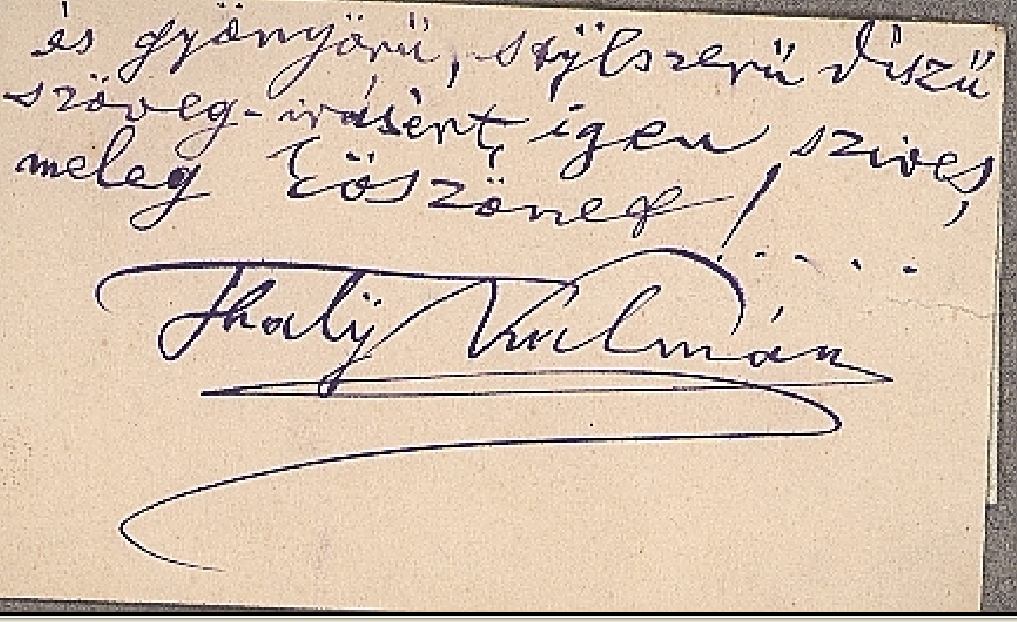 és gyönyörű, stÿlszerű díszű
szöveg-írásért, igen szives,
meleg köszönet! . . . . .
Thalÿ Kálmán